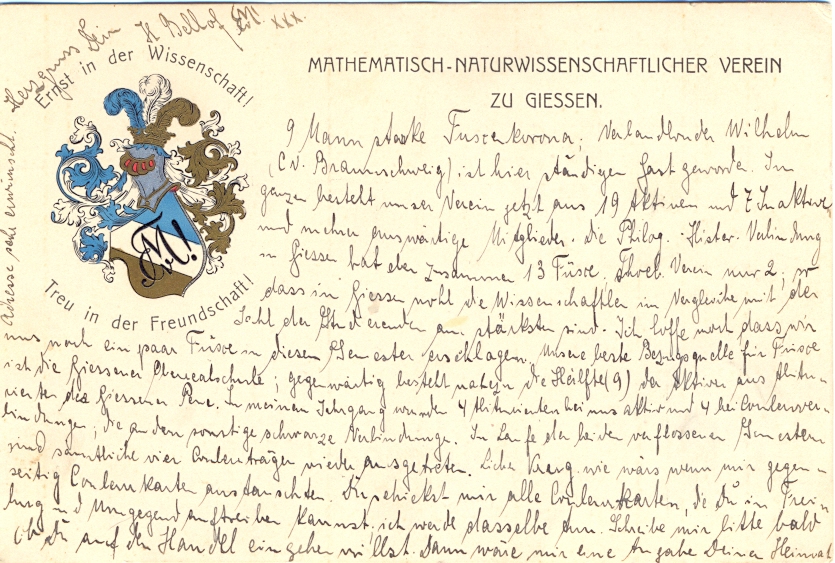 Ernst in der Wissenschaft!
Treu in der Freundschaft!
MATHEMATISCH-NATURWISSENSCHAFTLICHER VEREIN
ZU GIESSEN.
9 Mann starke Fuxenkorona; Verbandsbruder Wilhelm
(C.v. Braunschweig) ist hier ständigen Gast geworden. Im
ganzen besteht unser Verein jetzt aus 19 Aktiven und 7 Inaktiven
und mehren auswärtige Mitglieder. Die Philog. Histor. Verbindung
in Giessen hat eben zusammen 13 Füxe, Verein nur 2, so
dass in Giessen wohl die Wissenschaftler im Vergleiche mit der
Zahl der Studierenden am stärksten sind. Ich hoffe noch, dass wir
uns noch ein paar Füxe in diesem Semester erschlagen. Unsere beste Bezugsquelle für Füxe
ist die Giessener Oberrealschule; gegenwärtig besteht nahezu die Hälfte (9) der Aktiven aus Abitu-
rienten des Giessener In meinem Jahrgang wurden 4 Abiturienten bei uns aktiv und 4 bei Couleurver-
bindungen, die andern sonstige schwarze Verbindunge. Im Laufe der beiden verflossenen Semestern
sind sämtliche vier Couleurträger wieder ausgetreten. Lieber wie wärs wenn wir gegen-
seitig Couleurkarten austauschten. Du schickst mir alle Couleurkarten, die Du in Frei-
burg und Umgegend auftreiben kannst, ich werde dasselbe tun. Schreibe mir bitte bald
ob Du auf den Handel eingehen willst. Dann wäre mir eine Angabe Deiner Heimat
Adresse sehr erwünscht. Herzgruss Dein
H Bellof xxx.